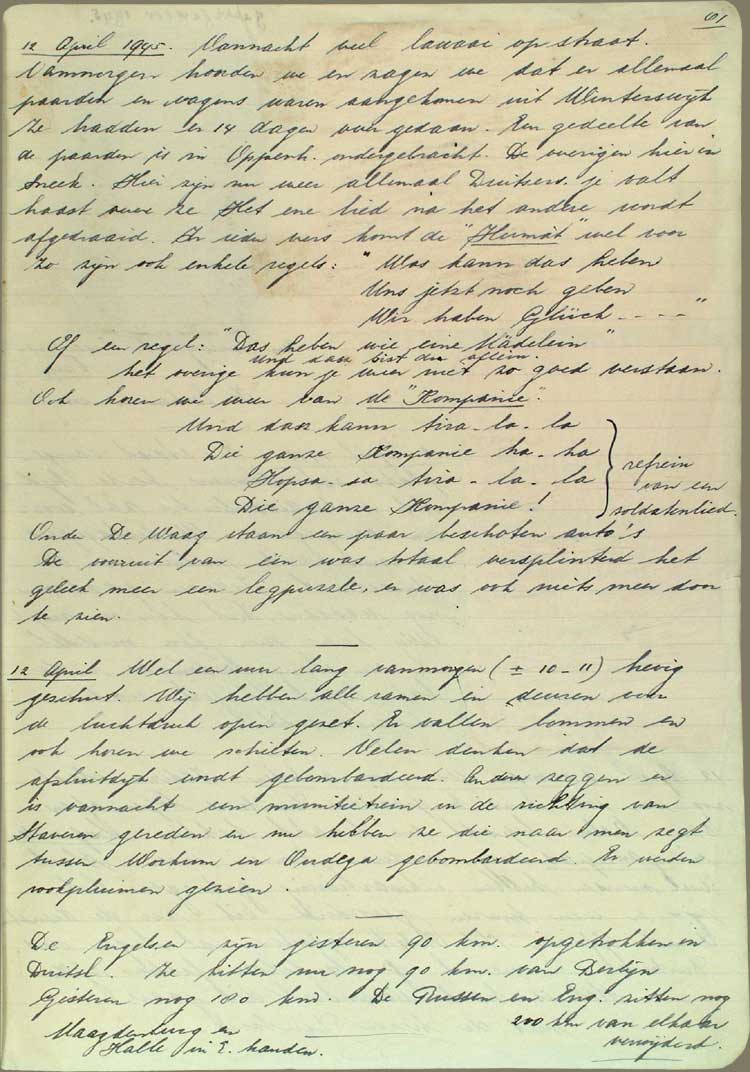 61
12 April 1945. Vannacht veel lawaai op straat.
Vanmorgen hoorden we en zagen we dat er allemaal
paarden en wagens waren aangekomen uit Winterswijk
Ze hadden er 14 dagen over gedaan. Een gedeelte van
de paarden is in Oppenh. ondergebracht. De overigen hier in
Sneek. Hier zijn nu weer allemaal Duitsers. je valt
haast over ze Het ene lied na het andere wordt
afgedraaid. In ieder vers komt de "Heimat" wel voor
Zo zijn ook enkele regels: "Was kann das Leben
Uns jetzt noch geben
Wir haben Glück - - - - "
Of een regel: "Das Leben wie eine Mädelein"
Und dass bist du allein.
het overige kun je weer niet zo goed verstaan.
Ook horen we weer van de "Kompanie".
Und dass kann tira-la-la
Die ganze Kompanie ha-ha
Hopsa-sa tira-la-la
Die ganze Kompanie!
refrein
van een
soldatenlied.
Onder De Waag staan een paar beschoten auto's
De voorruit van één was totaal versplinterd het
geleek meer een legpuzzle, er was ook niets meer door
te zien.
12 April Wel een uur lang vanmorgen (± 10-11) hevig
geschut. Wij hebben alle ramen en deuren voor
de luchtdruk open gezet. Er vallen bommen en
ook horen we schieten. Velen denken dat de
afsluitdijk wordt gebombardeerd. Anderen zeggen er
is vannacht een munitietrein in de richting van
Staveren gereden en nu hebben ze die naar men zegt
tussen Workum en Oudega gebombardeerd. Er werden
rookpluimen gezien.
De Engelsen zijn gisteren 90 km. opgetrokken in
Duitsl. Ze zitten nu nog 90 km. van Berlijn
Gisteren nog 180 km. De Russen en Eng. zitten nog
200 km van elkaar
verwijderd.
Maagdenburg en
Halle in E. handen.